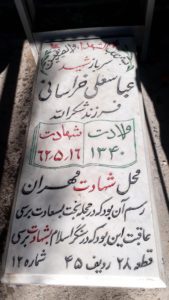 سرباز شهید
عباسعلی خراسانی
فرزند شکرالله
ولادت شهادت
۱۳۴۰ ۶۲,۵,۱۶
محل شهادت مهران
رسم آن بود که در مجلد بسعادت برسی
عاقبت این بود که در سنگر اسلام بشهادت برسی
قطعه ۲۸ ردیف ۴۵ شماره ۱۲